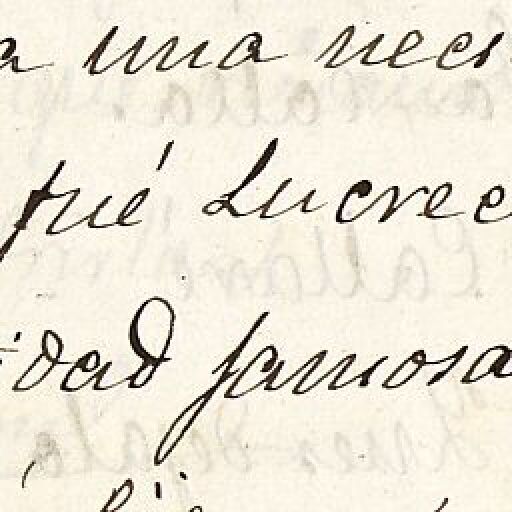 a una neci
fué Lucrec
idad famosa